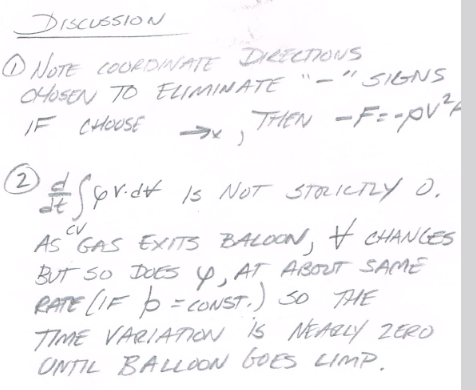 DISCUSSION
① NOTE COORDINATE DIRECTIONS
CHOSEN TO ELIMINATE "–" SIGNS
IF CHOOSE →x, THEN –F=-ρV²A
② d/dt ∫CV φV·dV IS NOT STRICTLY 0.
AS GAS EXITS BALOON, V CHANGES
BUT SO DOES φ, AT ABOUT SAME
RATE (IF p = CONST.) SO THE
TIME VARIATION IS NEARLY ZERO
UNTIL BALLOON GOES LIMP.